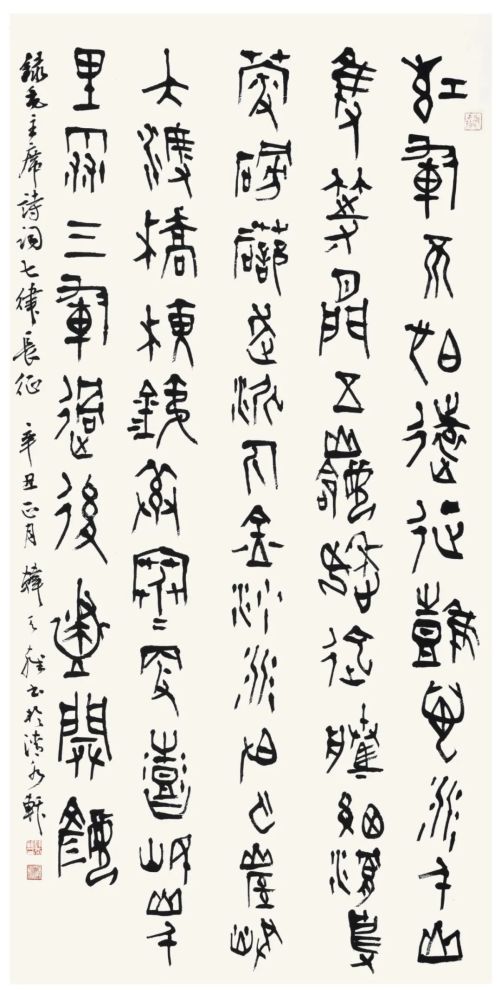 紅軍不怕遠征難萬水千山
隻等閒五嶺逶迤騰細浪烏
蒙磅礴走泥丸金沙水拍云崖暖
大渡橋橫鐵索寒更喜岷山千
里雪三軍過後盡開顏
錄毛主席詩詞七律長征 辛丑正月 韓天書於清水軒